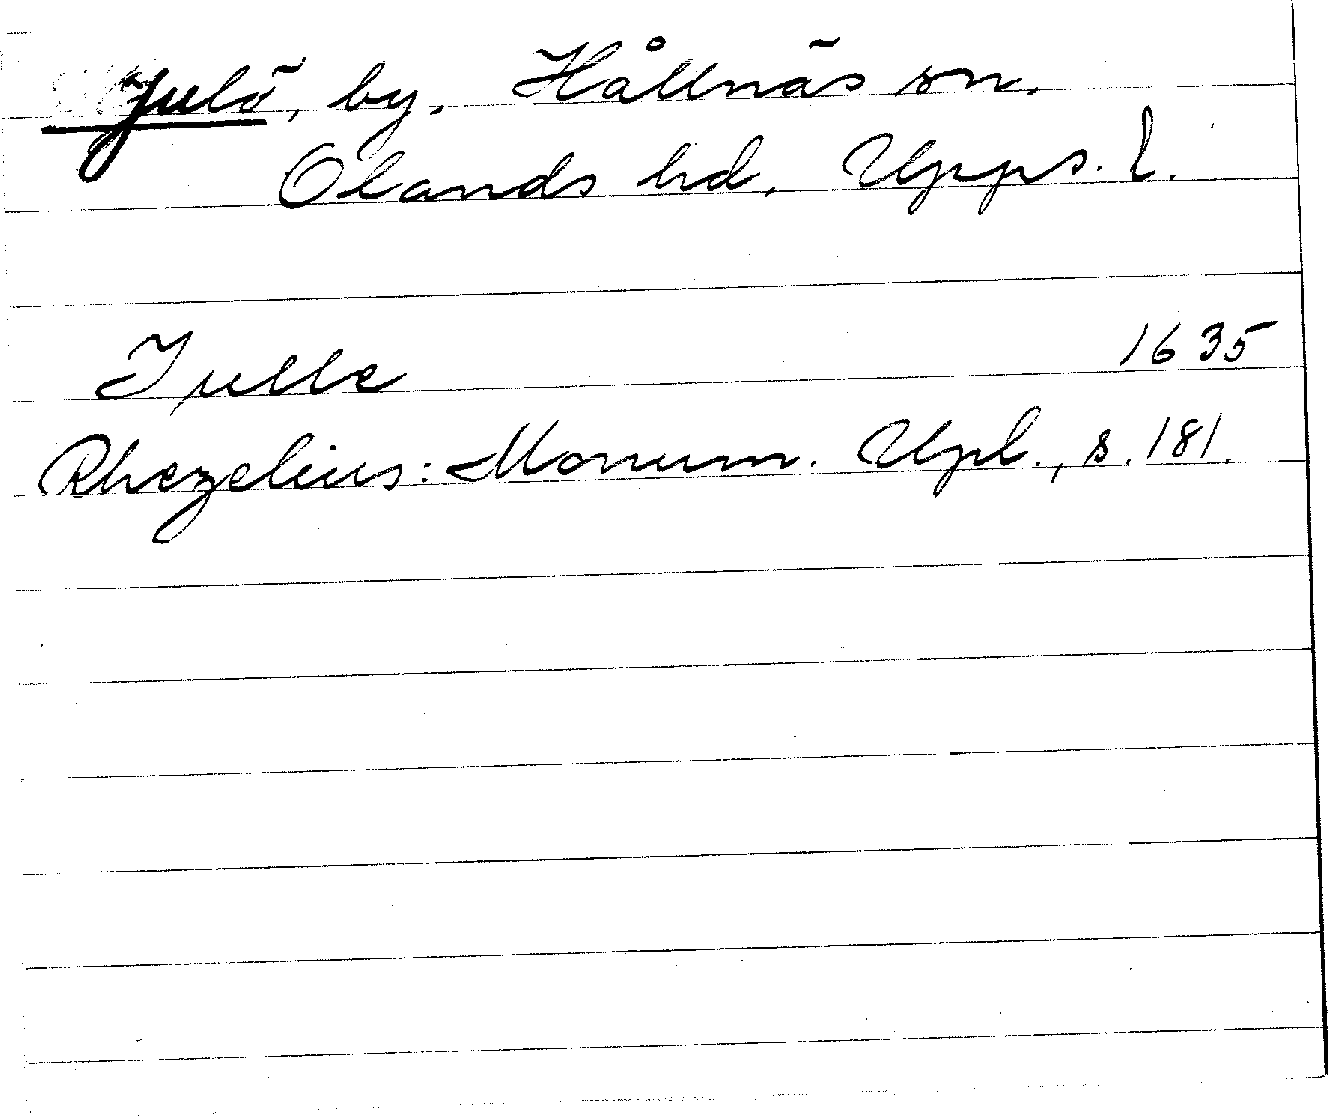 Julö, by. Hållnäs sn.
Olands hd, Upps. l.
Julle 1635
Rhezelius: Monum. Upl., s. 181.